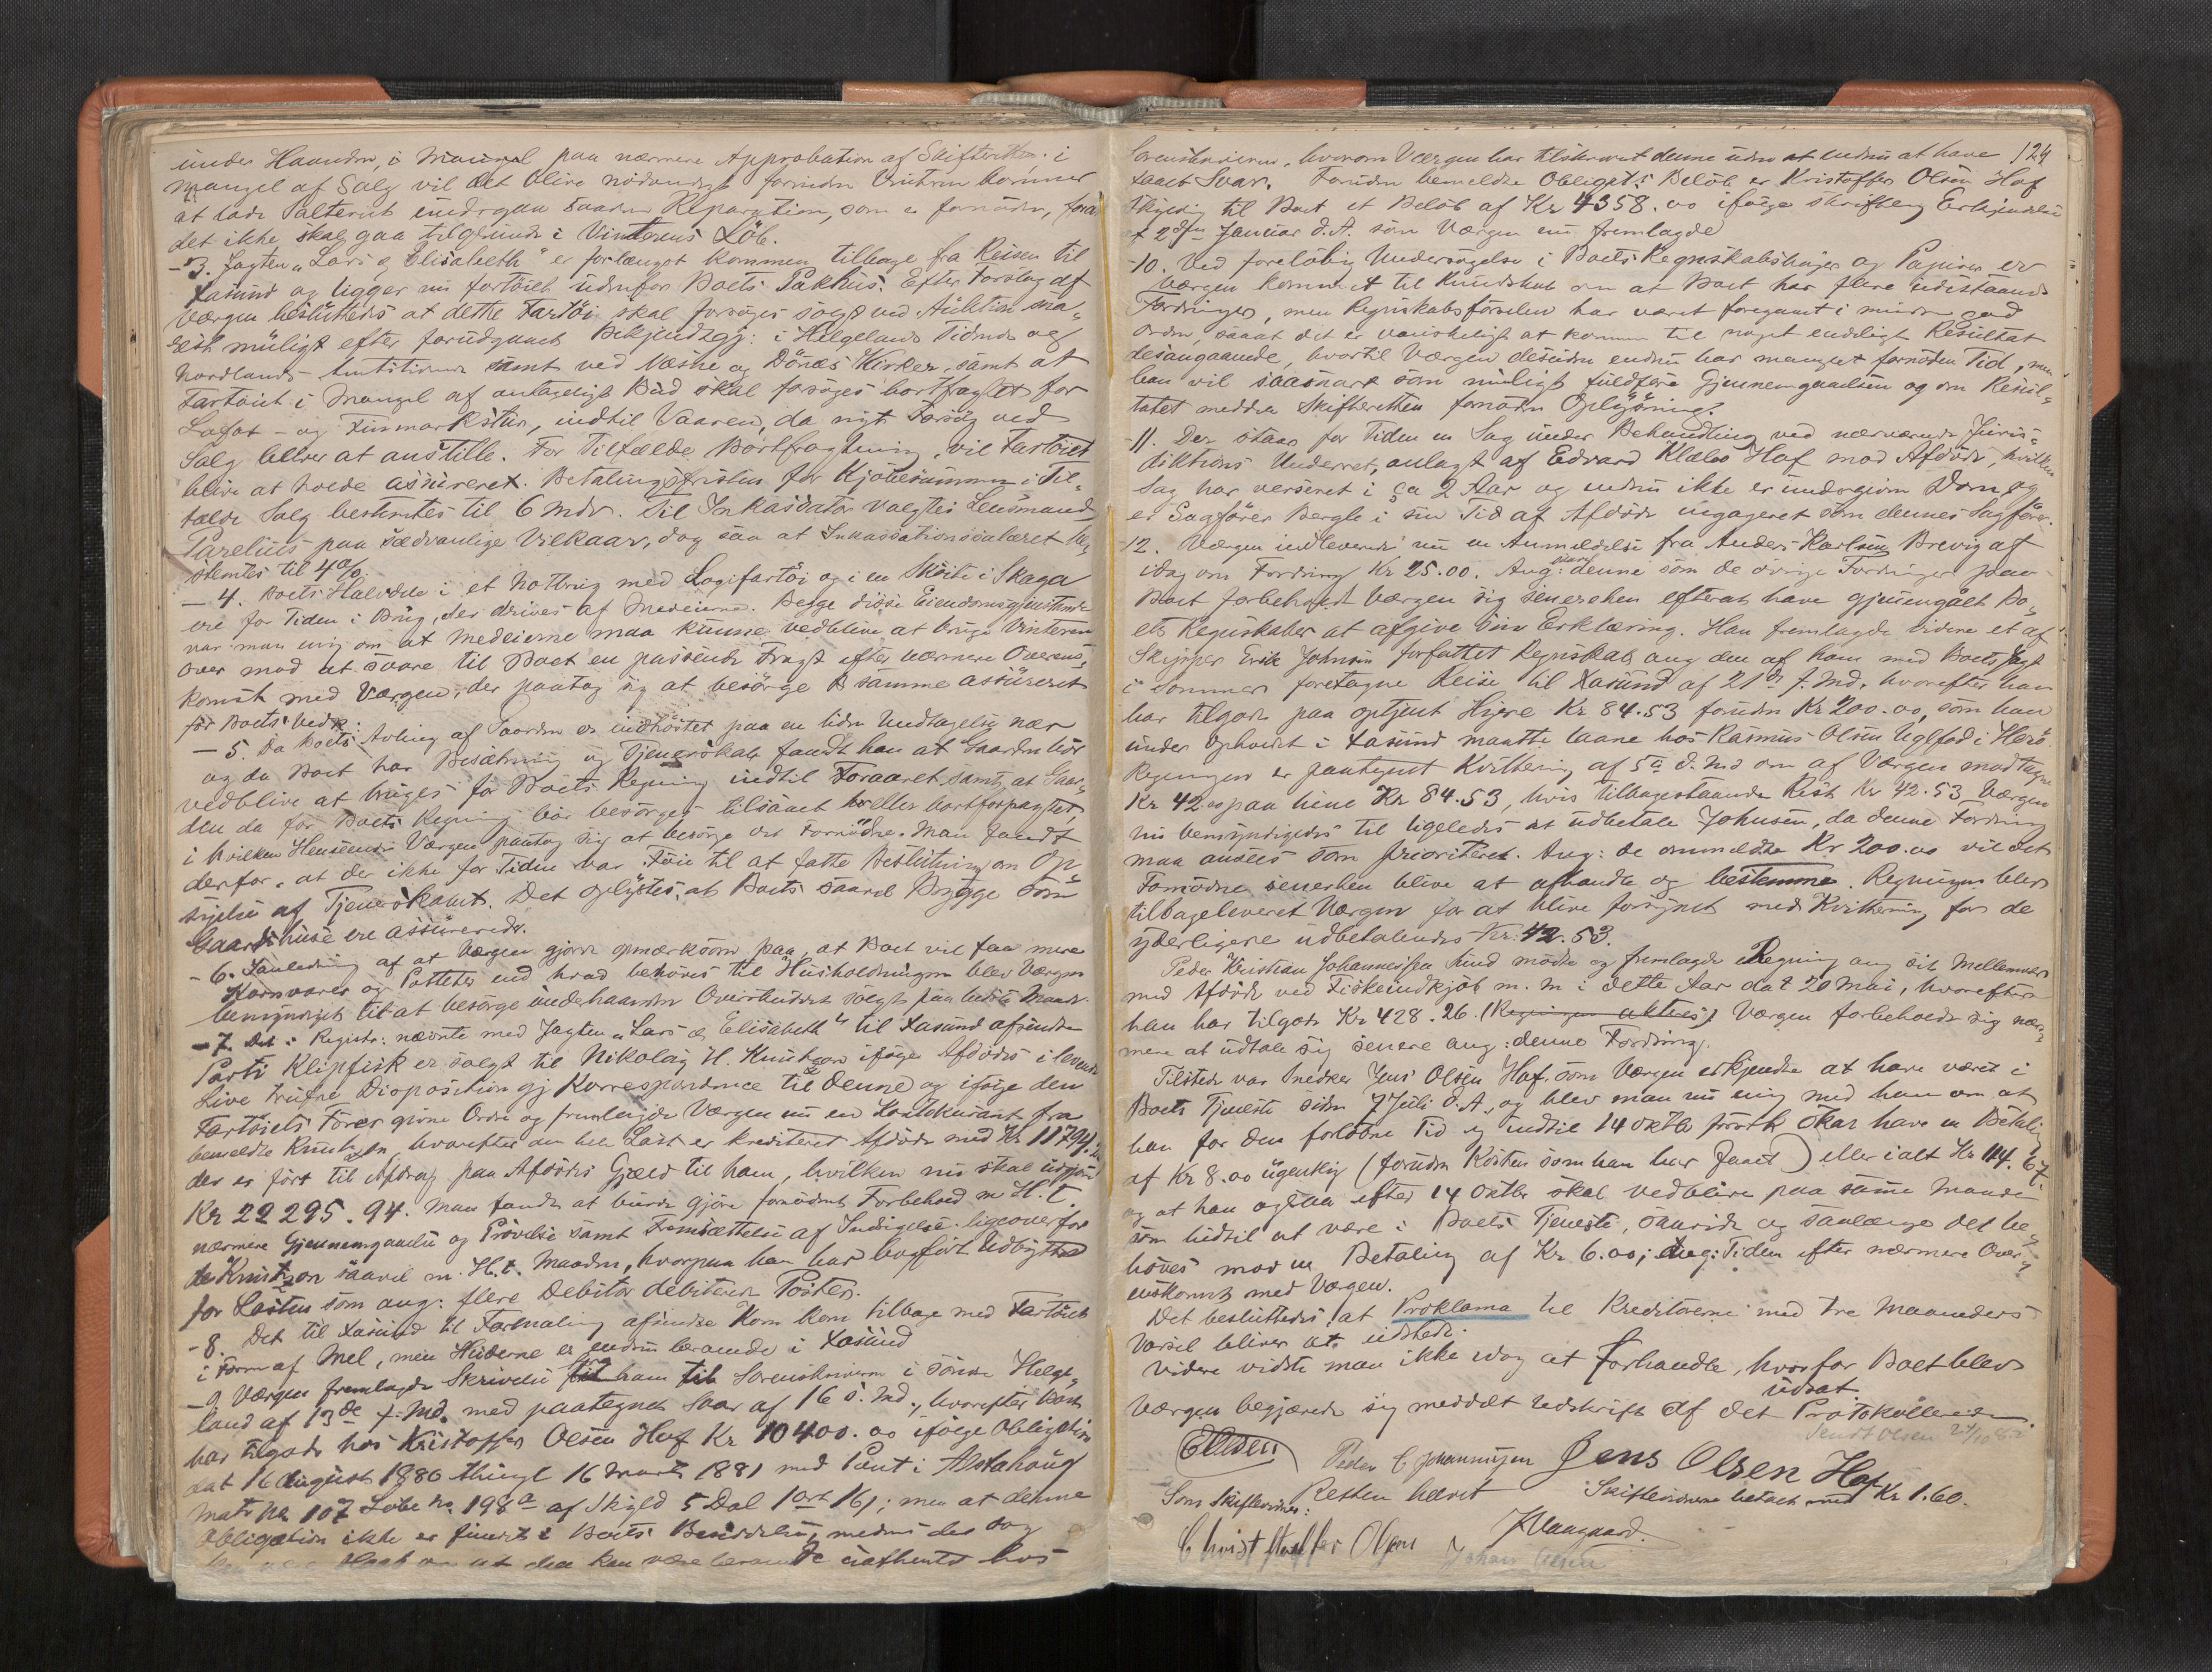 under Haanden, i Mangel paa nærmere Approbation af Skifteretten. i
Mangel af Salg vil det blive nödvendigt forinden Vinteren kommer
at lade Salteriet undergaa saadan Reparation, som er fornöden, forat
det ikke skal gaa tilgrunde i Vinterens Löb.
- 3. Jagten "Lars og Elisabeth" er forlængst kommen tilbage fra Reisen til
Xasund og ligger nu fortöiet udenfor Boets Pakhus. Efter Forslag af
Værgen besluttedes at dette Fartöi skal forsöges solgt ved Auktion sna-
rest muligt efter forudgaaet Bekjendtgj: i Helgelands Tidende og
Nordlands Amtstidende samt ved Næsne og Dönæs Kirker, samt at
Fartöiet i Mangel af antageligt Bud skal forsöges bortfragtet for
Lofot- og Finmarkstur, indtil Vaaren, da nyt Forsög ved
Salg bliver at anstille. For Tilfælde Bortfragtning vil Fartöiet
blive at holde assureret. Betalingsfristen for Kjöbesummen i Til-
fælde Salg bestemtes til 6 Mdr. Til Inkasator valgtes Lensmand
Parelius paa sædvanlige Vilkaar, dog saa at Inkassationssalæret be-
stemtes til 4%.
- 4. Boets Halvdele i et Notbrug med Logifartöi og i en Sköite i Skaga
ere for Tiden i Brug, der drives af Medeierne. Begge disse Eiendomsgjenstande
var man enig om at Medeierne maa kunne vedblive at bruge Vinteren
over mod at svare til Boet en passende Fragt efter nærmere Overens-
komst med Værgen, der paatog sig at besörge samme assureret
for Boets Vedk:
- 5. Da Boets Avling af Gaarden er indhöstet paa en liden Undtagelse nær
og da Boet har Besætning og Tjenerskab fandt han at Gaarden bör
vedblive at bruges for Boets Regning indtil Foraaret, samt at Gaar-
den da for Boets Regning bör besörges tilsaaet eller bortforpagtet,
i hvilken Henseende Værgen paatog sig at besörge det Fornödne. Man fandt
derfor, at der ikke for Tiden var Föie til at fatte Beslutning om Op-
sigelse af Tjenerskabet. Det oplystes, at Boets saavel Brygge som
Gaardshuse ere assurerede.
- 6. I Anledning af at Værgen gjorde opmærksom paa, at Boet vil faa mere
Kornvarer og Potteter end hvad behöves til Husholdningen blev Værgen
bemyndiget til at besörge underhaanden Overskuddet solgt paa bedste Maade.
- 7. Det i Registr: nævnte med Jagten "Lars og Elisabeth" til Xasund afsendte
Parti Klipfisk er solgt til Nikolay H. Knudtzon ifölge Afdödes i levende
Live trufne Disposition gj Korrespondence til denne og ifölge den
Fartöiets Förer givne Ordre og fremlagde Værgen nu en Kostekurant fra
bemeldte Knudtzon hvorefter den hele Last er krediteret Afdöde med Kr 11794
der er fört til Afdrag paa Afdödes Gjæld til ham, hvilken nu skal udgjöre
Kr 22295.94. Man fandt at burde gjöre fornödent Forbehold m H. t.
nærmere Gjennemgaaelse og Prövelse samt Fremsættelse af Indsigelse ligeoverfor
de Knudtzon saavel m. H. t. Maaden, hvorpaa han har bogfört Udbyttet
for Lasten som ang: flere Debitor debiterede Poster.
- 8. Det til Xasund til Formaling afsendte Korn kom tilbage med Fartöiet
i Form af Mel, men Huderne er endnu beroende i Xasund
- 9 Værgen fremlagde Skrivelse fra ham til Sorenskriveren i söndre Helge-
land af 13de f. Md. med paategnet Svar af 16 s. Md., hvorefter Boet
har tilgode hos Kristoffer Olsen Hof Kr 10400.00 ifölge Obligation
dat 16 August 1880 thingl 16 Marts 1881 med Pant i Alstahoug
Matr No 107 Löbe No. 198a af Skyld 5 Dal 1 ort 16 s; men at denne
Obligation ikke er fundet i Boets Besiddelse, medens der dog
kan være Haab om at den kan være beroende uafhentet hos
124
Sorenskriveren, hvorom Værgen har tilskrevet denne uden at endnu at have
faaet Svar. Foruden bemeldte Obligat:s Belöb er Kristoffer Olsen Hof
skyldig til Boet et Belöb af Kr 4358.00 ifölge skriftlig Erkjendelse
af 2den Januar d. A. som Værgen nu fremlagde
- 10. Ved forelöbig Undersögelse i Boets Regnskabsböger og Papirer er
Værgen kommet til Kundskab om at Boet har flere udestaaende
Fordringer, men Regnskabsförselen har været foregaaet i mindre god
Orden, saaat det er vanskeligt at komme til noget endeligt Resultat
desangaaende, hvortil Værgen desuden endnu har manglet fornöden Tid, men
han vil saasnart som muligt fuldföre Gjennemgaaelsen og om Resul-
tatet meddele Skifteretten fornöden Oplysning.
- 11. Der staar for Tiden en Sag under Behandling ved nærværende Juris-
diktions Underret, anlagt af Edvard Klæboe Hof mod Afdöde, hvilken
Sag har verseret i ca 2 Aar og endnu ikke er undergiven Dom og
er Sagförer Bergh i sin Tid af Afdöde engageret som dennes Sagförer.
12. Værgen indleverede nu en Anmeldelse fra Anders Karlsen Brevig af
idag om Fordring Kr 25.00. Ang: denne som de övrige Fordringer paa
Boet forbeholdt Værgen sig senerehen efterat have gjennemgaaet Bo-
ets Regnskaber at afgive sin Erklæring. Han fremlagde videre et af
Skipper Erik Johnsen forfattet Regnskab ang den af ham med Boets Jagt
i Sommer foretagne Reise til Xasund af 21de f. Md. hvorefter han
har tilgode paa optjent Hyre Kr 84.53 foruden Kr 200.00, som han
under Opholdet i Xasund maatte laane hos Rasmus Olsen Uglfod i Herö.
Regningen er paategnet Kvittering af 5te d. Md om af Værgen modtagne
Kr 42.00 paa hine Kr 84.53, hvis tilbagestaaende Rest Kr 42.53 Værgen
nu bemyndigedes til ligeledes at udbetale Johnsen, da denne Fordring
maa ansees som prioriteret. Ang: de anmeldte Kr 200.00 vil det
Fornödne senerehen blive at afhandle og bestemme. Regningen blev
tilbageleveret Værgen for at blive forsynet med Kvittering for de
yderligere udbetalendes Kr: 42.53.
Peder Kristian Johannessen Sund mödte og fremlagde Regning ang sit Mellemvær
med Afdöde ved Fiskeindkjöb m. m i dette Aar dat 20 Mai, hvorefter
han har tilgode Kr 428.26. (Regningen aktes) Værgen forbeholdt sig nær-
mere at udtale sig senere ang: denne Fordring.
Tilstede var Snedker Jens Olsen Hof, som Værgen erkjendte at have været i
Boets Tjeneste siden 7 Juli d. A., og blev man nu enig med ham om at
han for den forlöbne Tid og indtil 14 Oktbr förstk skal have en Betaling
af Kr 8.00 ugentlig (foruden Kosten som han har faaet) eller ialt Kr 114.67.
og at han ogsaa efter 14 Oktbr skal vedblive paa samme Maade
som hidtil at være i Boets Tjeneste, saavidt og saalænge det be-
höves mod en Betaling af Kr. 6.00; Ang: Tiden efter nærmere Over-
enskomst med Værgen.
Det besluttedes at Proklama til Kreditorerne med tre Maaneders
Varsel bliver at udstede.
Videre vidste man ikke idag at forhandle, hvorfor Boet blev
udsat.
Værgen begjærede sig meddelt Udskrift af det Protokollerede.
Sendt Olsen 21/10 82
EOlsen Peder C Johannesen Jens Olsen Hof
Som Skiftevidner: Retten hævet Skiftevidnerne betalt med Kr 1.60.
Christoffer Olsen JVaagaard.
Johan Olsen